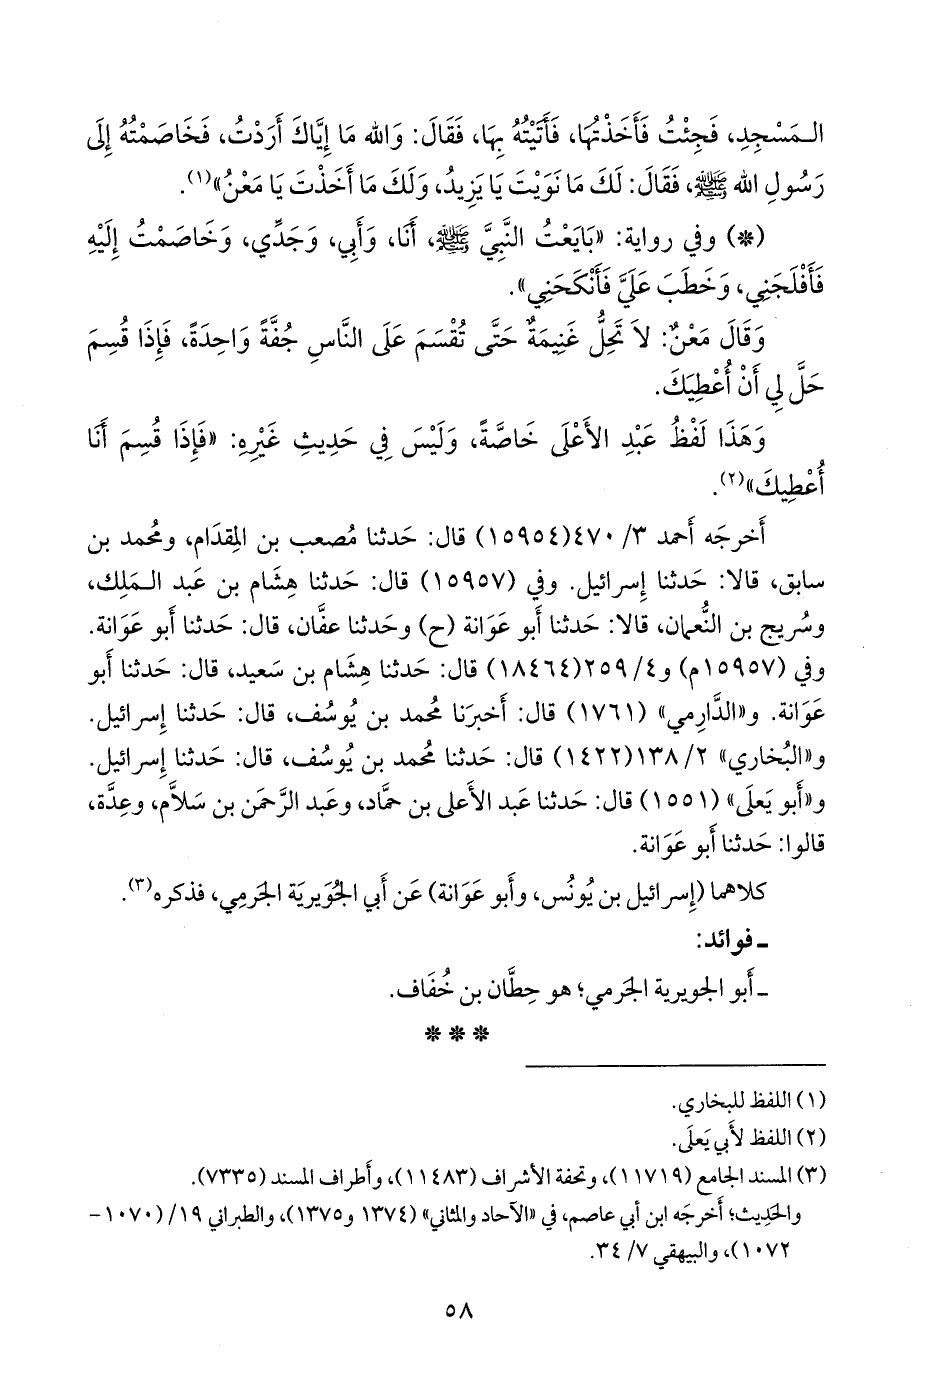 الـمَسْجِدِ، فَجِئْتُ فَأَخَذْتُهَا، فَأَتَيْتُهُ بِهَا، فَقَالَ: وَالله مَا إِيَّاكَ أَرَدْتُ، فَخَاصَمْتُهُ إِلَى
رَسُولِ الله ﷺ، فَقَالَ: لَكَ مَا نَوَيْتَ يَا يَزِيدُ، وَلَكَ مَا أَخَذْتَ يَا مَعْنُ»(١).
(*) وفي رواية: «بَايَعْتُ النَّبِيَّ ﷺ، أَنَا، وَأَبِي، وَجَدِّي، وَخَاصَمْتُ إِلَيْهِ
فَأَفْلَجَنِي، وَخَطَبَ عَلَيَّ فَأَنْكَحَنِي».
وَقَالَ مَعْنٌ: لاَ تَحِلُّ غَنِيمَةٌ حَتَّى تُقْسَمَ عَلَى النَّاسِ جُفَّةً وَاحِدَةً، فَإِذَا قُسِمَ
حَلَّ لِي أَنْ أُعْطِيَكَ.
وَهَذَا لَفْظُ عَبْدِ الأَعْلَى خَاصَّةً، وَلَيْسَ فِي حَدِيثِ غَيْرِهِ: «فَإِذَا قُسِمَ أَنَا
أُعْطِيكَ»(٢).
أَخرجَه أَحمد ٣/ ٤٧٠(١٥٩٥٤) قال: حَدثنا مُصعب بن المِقدَام، ومُحمد بن
سابق، قالا: حَدثنا إِسرائيل. وفي (١٥٩٥٧) قال: حَدثنا هِشَام بن عَبد الـمَلِك،
وسُريج بن النُّعمان، قالا: حَدثنا أَبو عَوَانة (ح) وحَدثنا عفَّان، قال: حَدثنا أَبو عَوَانة.
وفي (١٥٩٥٧م) و٤/ ٢٥٩(١٨٤٦٤) قال: حَدثنا هِشَام بن سَعيد، قال: حَدثنا أَبو
عَوَانة. و«الدَّارِمي» (١٧٦١) قال: أَخبرَنا مُحمد بن يُوسُف، قال: حَدثنا إِسرائيل.
و«البُخاري» ٢/ ١٣٨(١٤٢٢) قال: حَدثنا مُحمد بن يُوسُف، قال: حَدثنا إِسرائيل.
و«أَبو يَعلَى» (١٥٥١) قال: حَدثنا عَبد الأَعلى بن حمَّاد، وعَبد الرَّحمَن بن سَلاَّم، وعِدَّة،
قالوا: حَدثنا أَبو عَوَانة.
كلاهما (إِسرائيل بن يُونُس، وأَبو عَوَانة) عَن أَبي الجُوَيرِيَة الجَرمِي، فذكره(٣).
ـ فوائد:
ـ أَبو الجويرية الجَرمي؛ هو حِطَّان بن خُفَاف.
* * *
(١) اللفظ للبخاري.
(٢) اللفظ لأَبي يَعلَى.
(٣) المسند الجامع (١١٧١٩)، وتحفة الأشراف (١١٤٨٣)، وأَطراف المسند (٧٣٣٥).
والحَدِيث؛ أَخرجَه ابن أَبي عاصم، في «الآحاد والمثاني» (١٣٧٤ و١٣٧٥)، والطبراني ١٩/ (١٠٧٠-
١٠٧٢)، والبيهقي ٧/ ٣٤.
٥٨